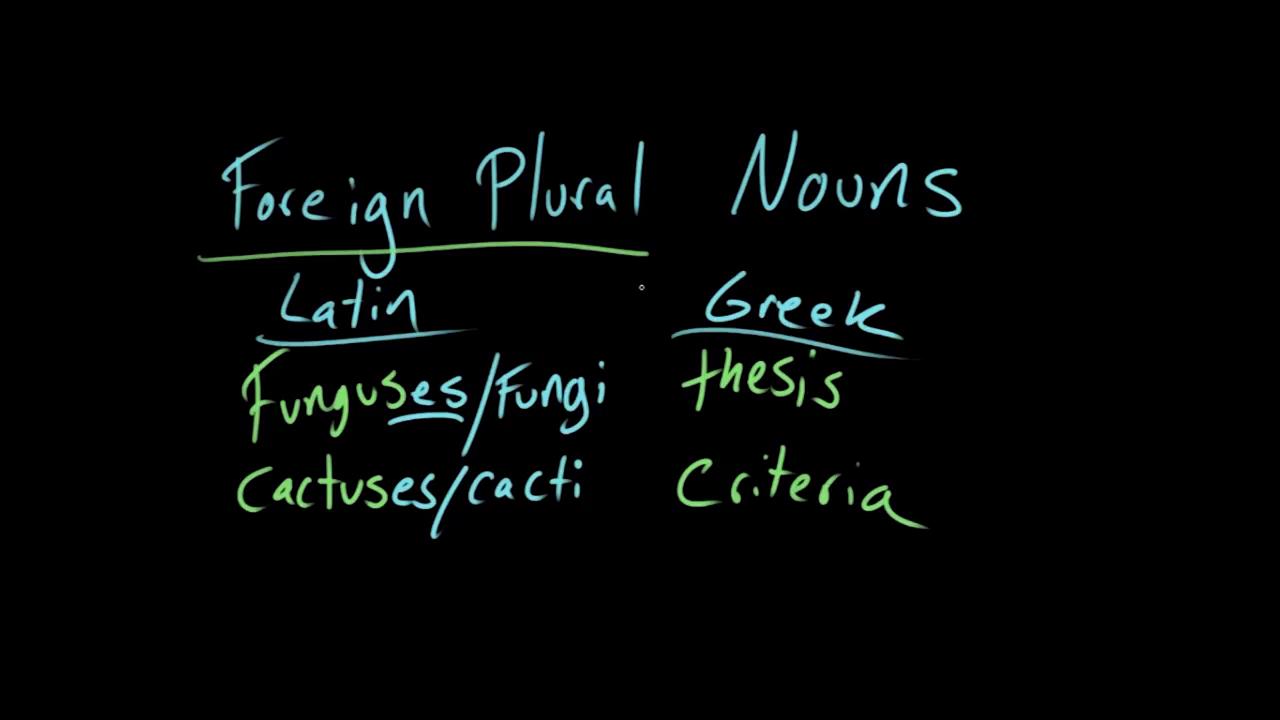 Foreign Plural Nouns
Latin
Greek
Funguses/Fungi
thesis
Cactuses/cacti
Criteria